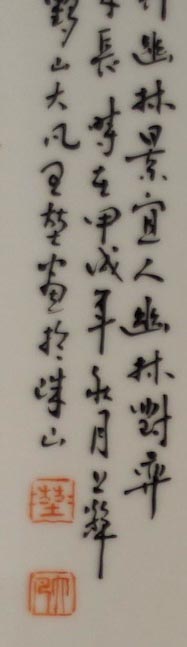 幽林景宜人幽林對弈
長 時在甲戌年秋月
山大風里楚畫於珠山
楚